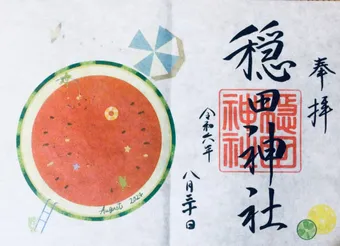 奉拝
穏田神社
令和六年
八月三日
August 2024